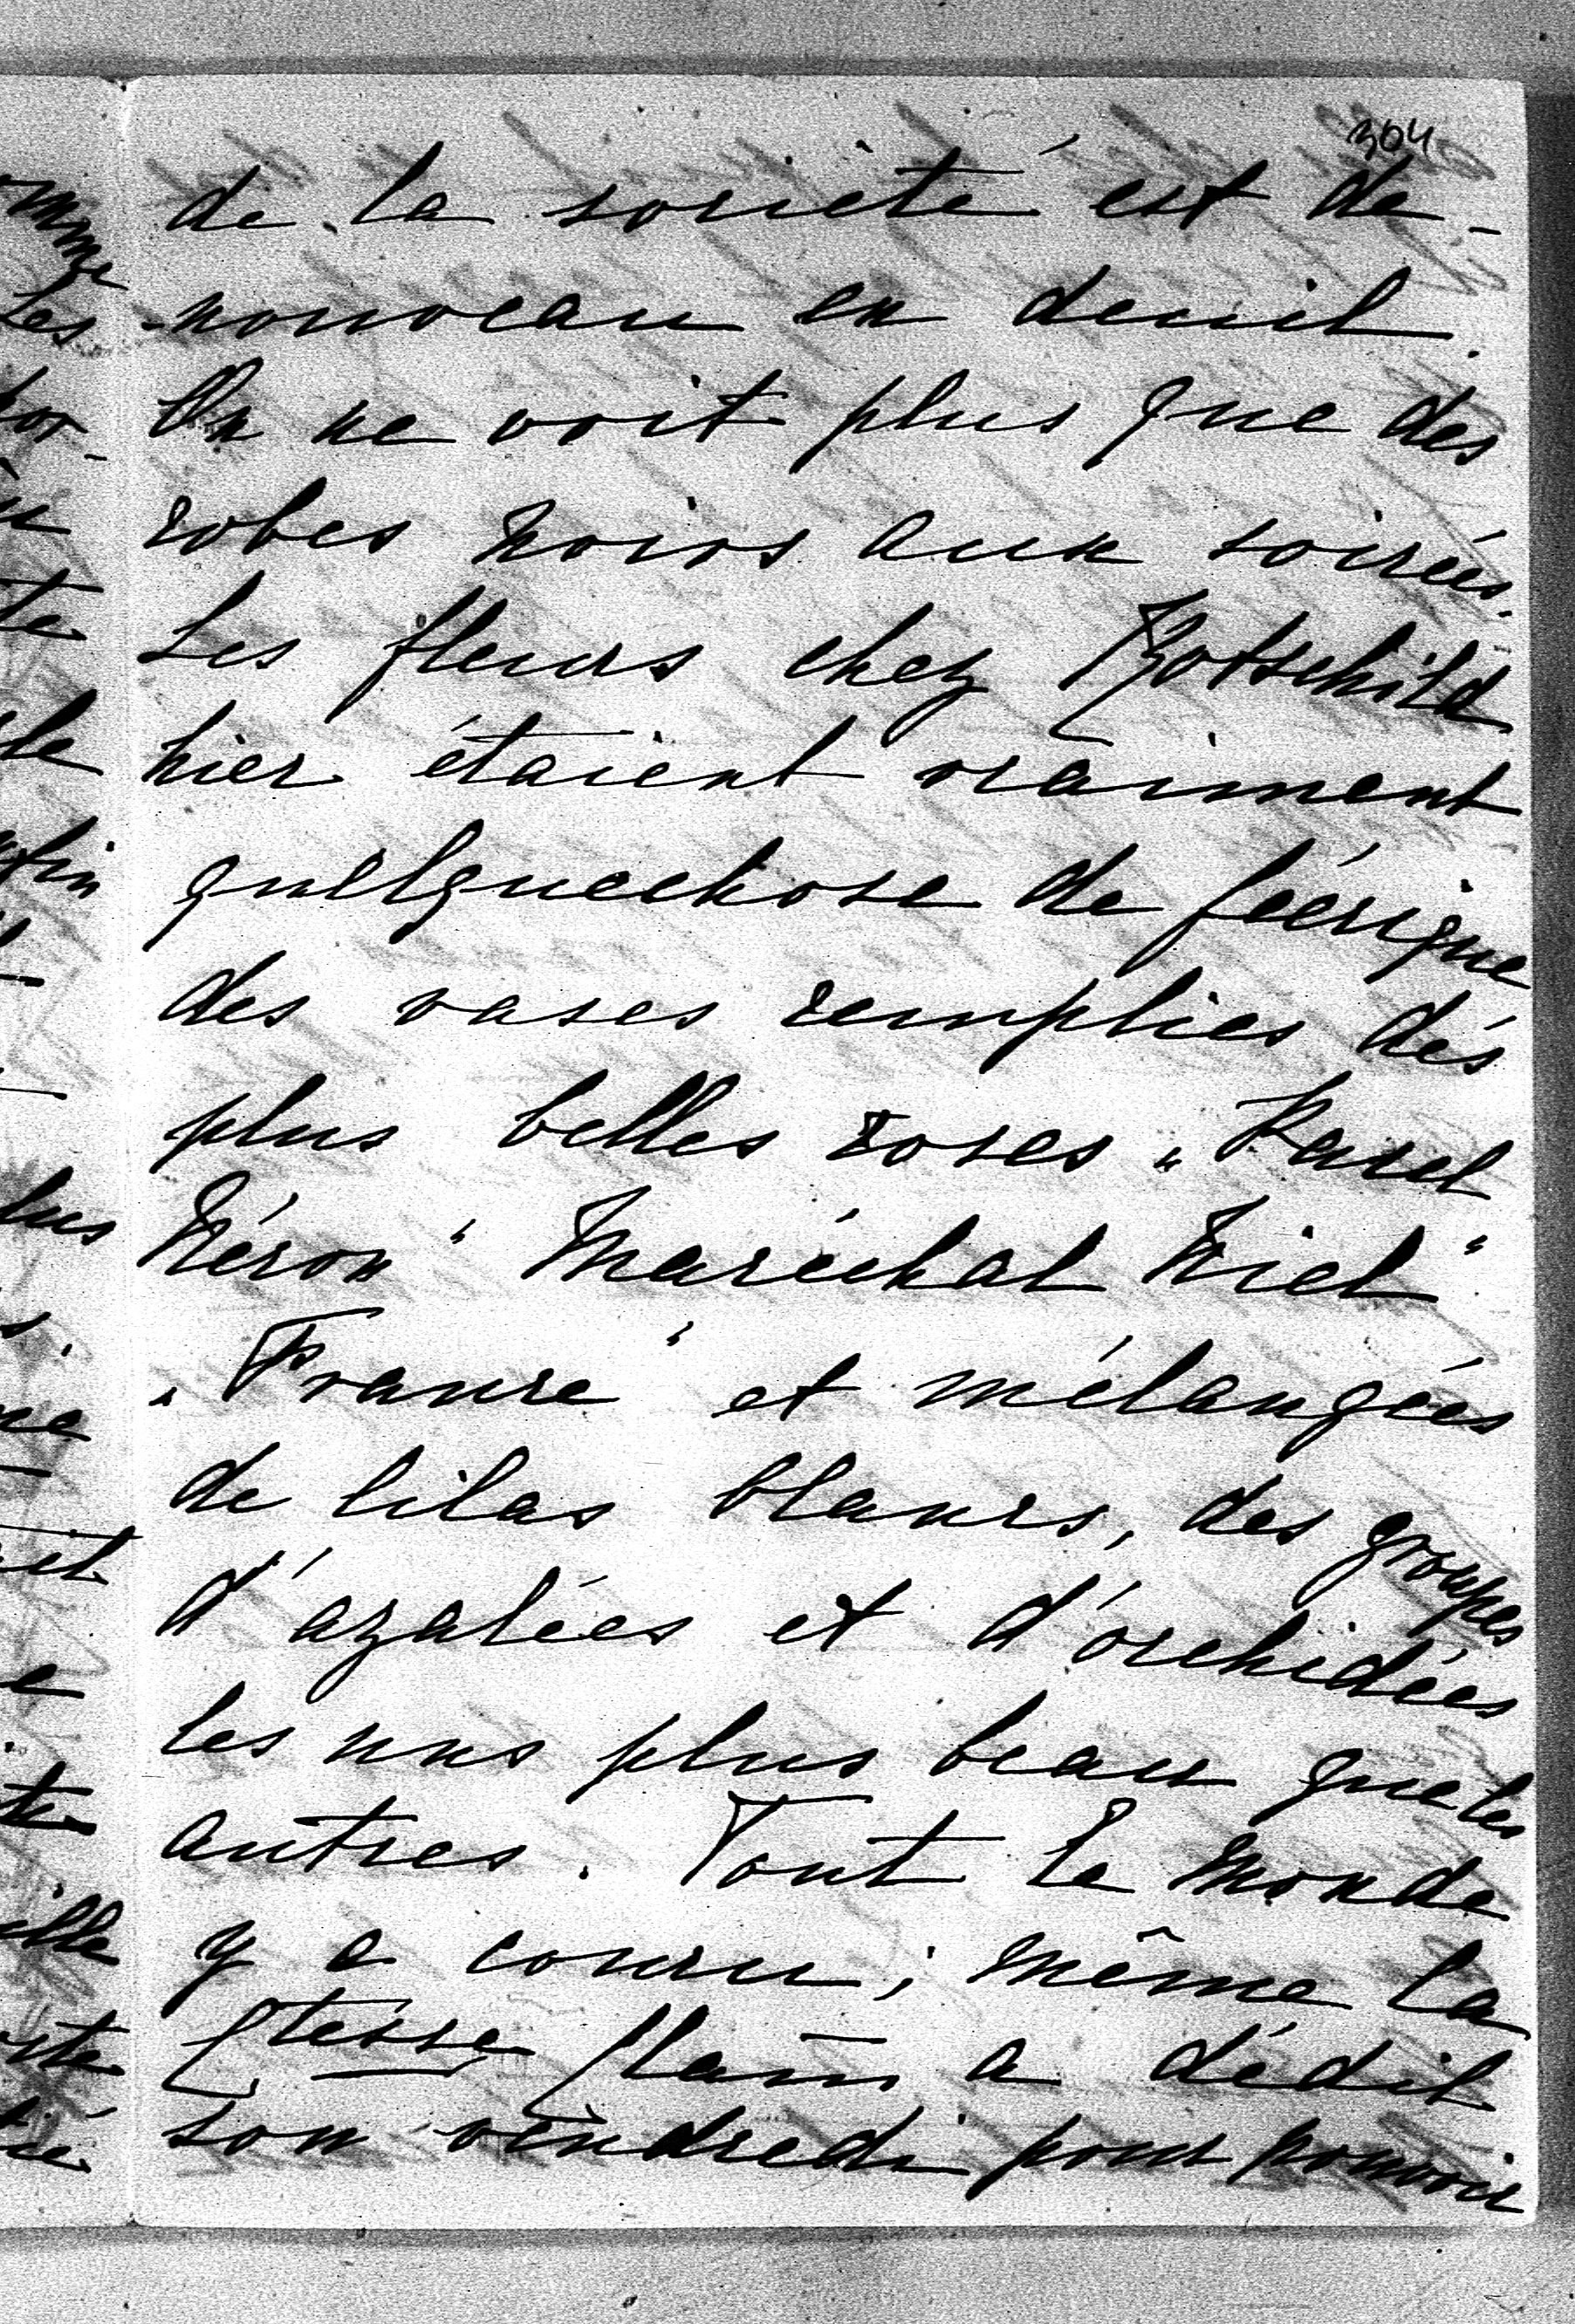 304
de la societé est de-
-nouveau en deuil.
On ne voit plus que des
robes noirs aux soirées.
Les fleurs chez Rotschild
hier étaient vraiment
quelquechose de féerique
des vases remplies des
plus belles roses „Karel
Néron“ Maréchal Niel“
„France“ et mélangées
de lilas blancs, des groupes
d'azalées et d'orchidées
les uns plus beau que les
autres. Tout le monde
y a couru; même la
Ctesse a dédit
son vendredi pour pouvoir